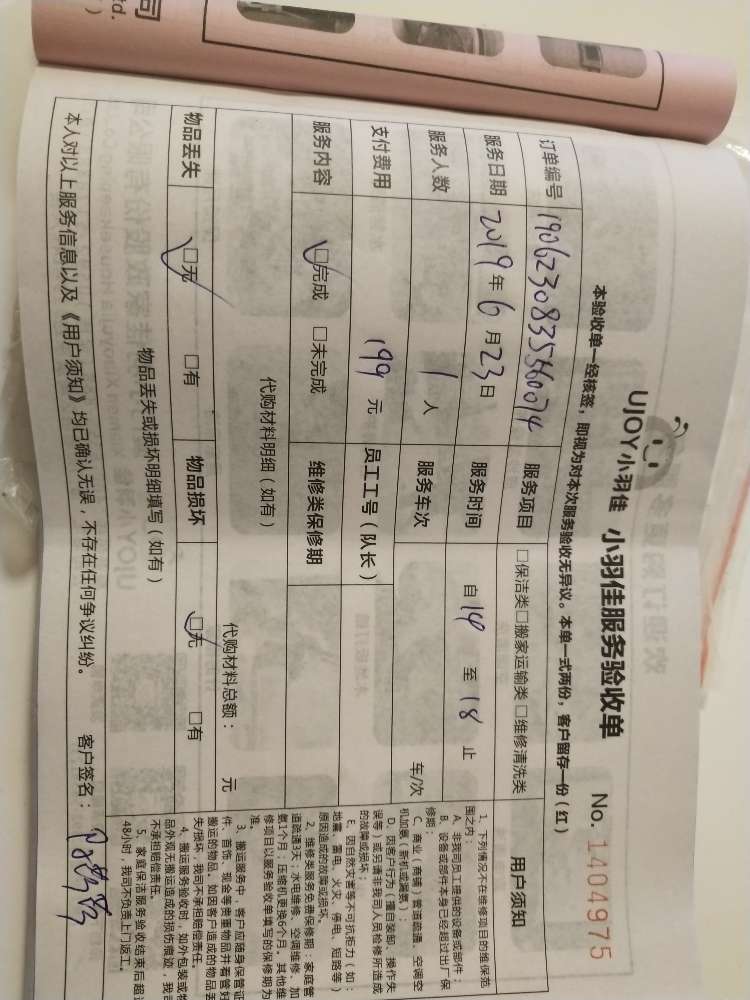 司
td.
UJOY小羽佳 小羽佳服务验收单 No. 1404975
本验收单一经核签，即视为对本次服务验收无异议。本单一式两份，客户留存一份（红）
订单编号 1906230835560074 服务项目 □保洁类□搬家运输类□维修清洗类
服务日期 2019年6月23日 服务时间 自14至18止
服务人数 1人 服务车次 车/次
支付费用 199元 员工工号（队长）
服务内容 □完成 □未完成 维修类保修期
代购材料明细（如有） 代购材料总额： 元
物品丢失 □无 □有 物品损坏 □无 □有
物品丢失或损坏明细填写（如有）
本人对以上服务信息以及《用户须知》均已确认无误，不存在任何争议纠纷。 客户签名：
用户须知
1、下列情况不在维修项目的维保范
围之内：
A、非我司员工提供的设备或部件；
B、设备或部件本身已经超过出厂保
修期；
C、商业（商铺）管道疏通、空调空
机加氨（新机或漏氨）；
D、因客户行为（擅自装卸、操作失
误等）或另请非我司人员检修所造成
的故障或损坏；
E、因自然灾害等不可抗拒力（如：
地震、雷电、火灾、停电、短路等）
原因造成的故障或损坏。
2、维修类服务免费保修期：家庭管
道疏通3天；水电维修、空调维修、加
氨1个月；压缩机更换6个月。其他维
修项目以服务验收单填写的保修期为
准。
3、搬运服务中，客户应随身保管证
件、首饰、现金等贵重物品并看管好
搬运的物品，如因客户造成的物品丢
失/损坏，我司不承担赔偿责任。
4、搬运服务验收时，如外包装或物
品外观无搬运造成的损伤痕迹，我司
不承担赔偿责任。
5、家庭保洁服务验收结束后超过
48小时，我司不负责上门返工。